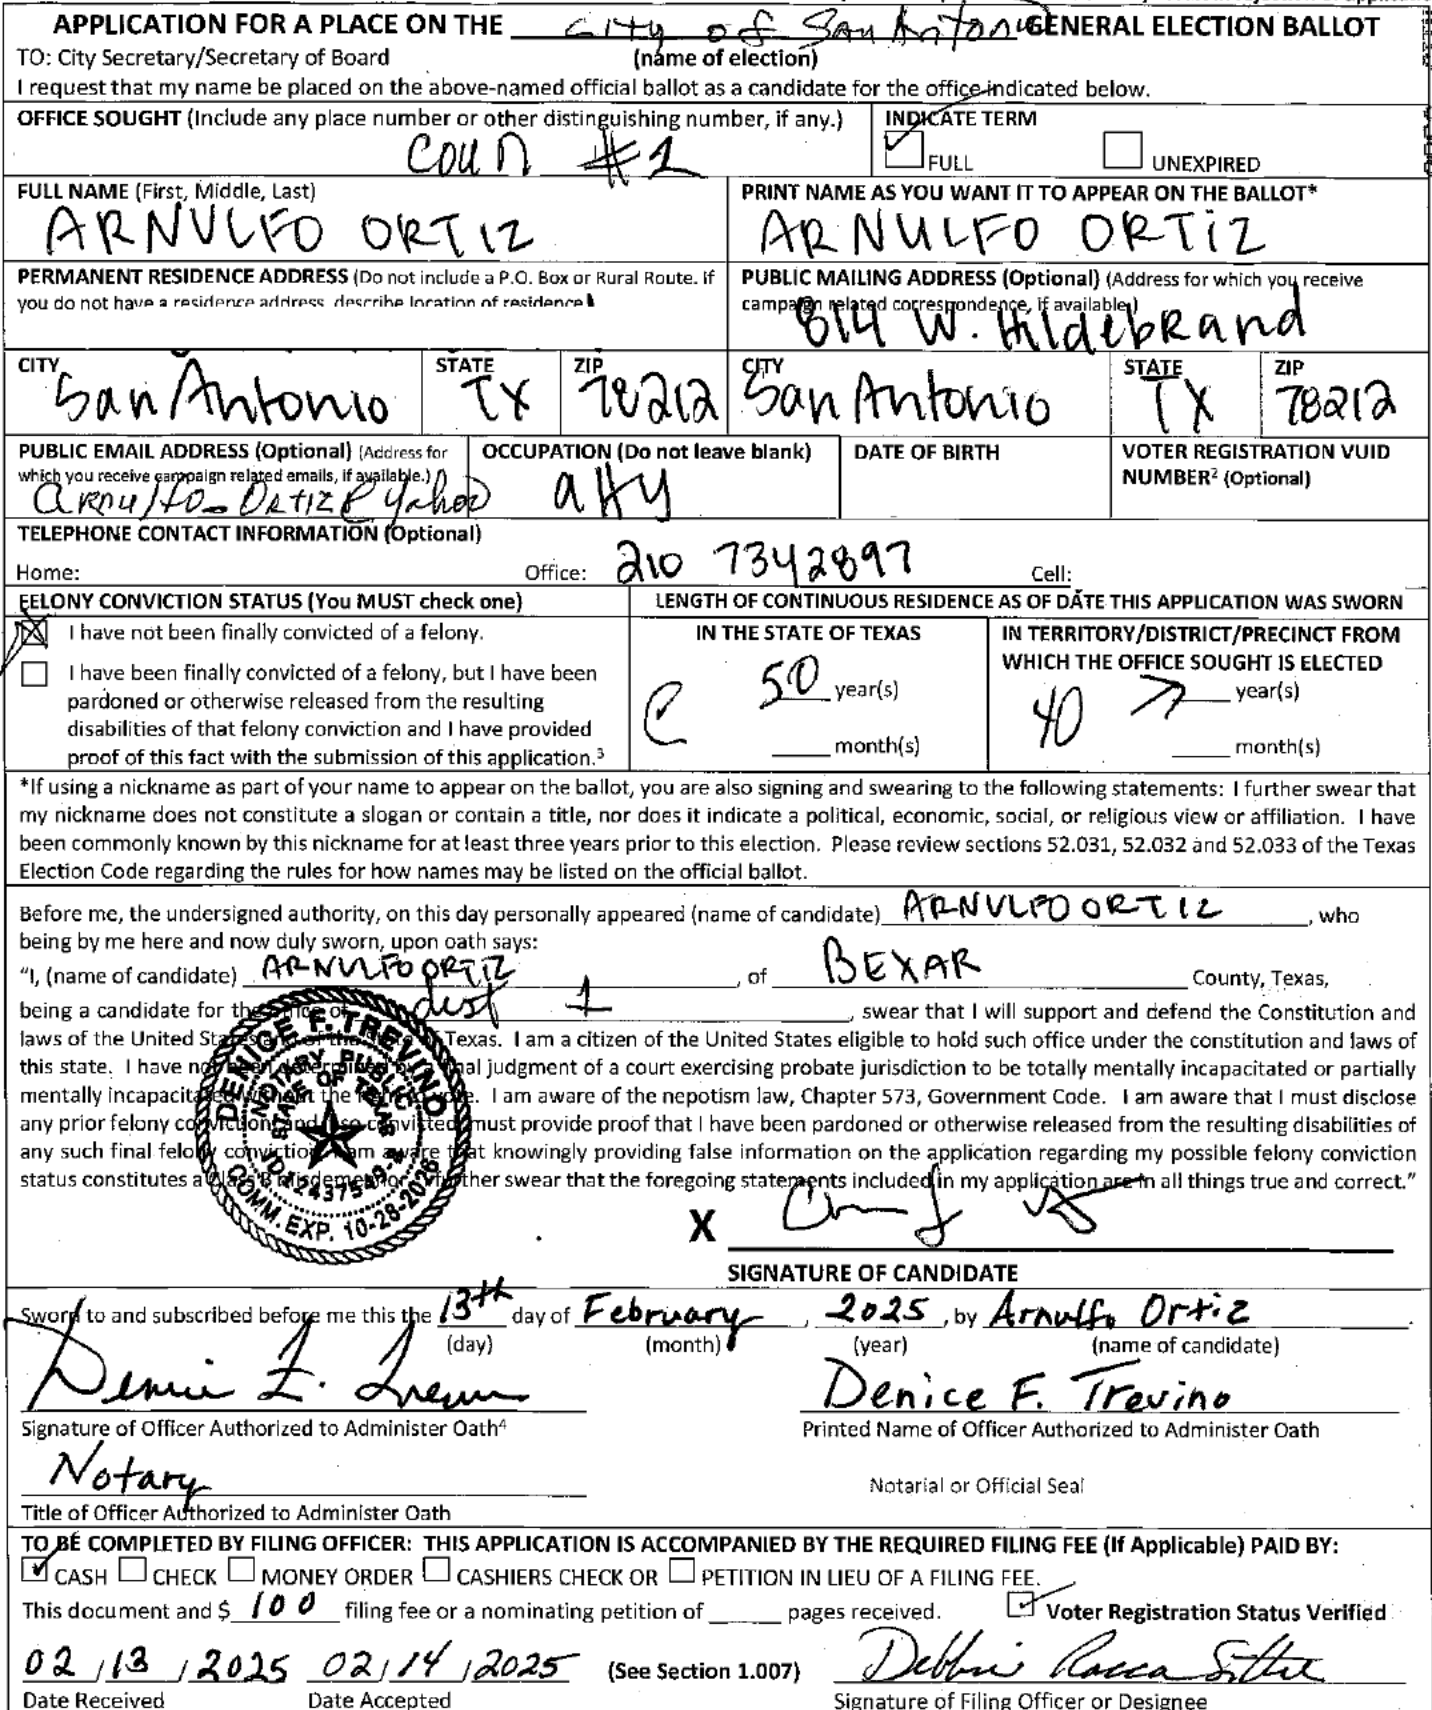 APPLICATION FOR A PLACE ON THE City of San Antonio GENERAL ELECTION BALLOT
TO: City Secretary/Secretary of Board (name of election)
I request that my name be placed on the above-named official ballot as a candidate for the office indicated below.
OFFICE SOUGHT (Include any place number or other distinguishing number, if any.)
Coun #1
INDICATE TERM
FULL UNEXPIRED
FULL NAME (First, Middle, Last)
ARNULFO ORTIZ
PRINT NAME AS YOU WANT IT TO APPEAR ON THE BALLOT*
ARNULFO ORTIZ
PERMANENT RESIDENCE ADDRESS (Do not include a P.O. Box or Rural Route. If
you do not have a residence address, describe location of residence
PUBLIC MAILING ADDRESS (Optional) (Address for which you receive
campaign related correspondence, if available.)
814 W. Hildebrand
CITY
San Antonio
STATE
TX
ZIP
78212
CITY
San Antonio
STATE
TX
ZIP
78212
PUBLIC EMAIL ADDRESS (Optional) (Address for
which you receive campaign related emails, if available.)
arnulfo_Ortiz@yahoo
OCCUPATION (Do not leave blank)
atty
DATE OF BIRTH
VOTER REGISTRATION VUID
NUMBER² (Optional)
TELEPHONE CONTACT INFORMATION (Optional)
Home: Office: 210 7342897 Cell:
FELONY CONVICTION STATUS (You MUST check one)
I have not been finally convicted of a felony.
I have been finally convicted of a felony, but I have been
pardoned or otherwise released from the resulting
disabilities of that felony conviction and I have provided
proof of this fact with the submission of this application.³
LENGTH OF CONTINUOUS RESIDENCE AS OF DATE THIS APPLICATION WAS SWORN
IN THE STATE OF TEXAS
50 year(s)
month(s)
IN TERRITORY/DISTRICT/PRECINCT FROM
WHICH THE OFFICE SOUGHT IS ELECTED
40 year(s)
month(s)
*If using a nickname as part of your name to appear on the ballot, you are also signing and swearing to the following statements: I further swear that
my nickname does not constitute a slogan or contain a title, nor does it indicate a political, economic, social, or religious view or affiliation. I have
been commonly known by this nickname for at least three years prior to this election. Please review sections 52.031, 52.032 and 52.033 of the Texas
Election Code regarding the rules for how names may be listed on the official ballot.
Before me, the undersigned authority, on this day personally appeared (name of candidate) ARNULFO ORTIZ, who
being by me here and now duly sworn, upon oath says:
"I, (name of candidate) ARNULFO ORTIZ, of BEXAR County, Texas,
being a candidate for the office of dist 1, swear that I will support and defend the Constitution and
laws of the United States and of the State of Texas. I am a citizen of the United States eligible to hold such office under the constitution and laws of
this state. I have not been determined by a final judgment of a court exercising probate jurisdiction to be totally mentally incapacitated or partially
mentally incapacitated without the right to vote. I am aware of the nepotism law, Chapter 573, Government Code. I am aware that I must disclose
any prior felony conviction, and if so convicted, must provide proof that I have been pardoned or otherwise released from the resulting disabilities of
any such final felony conviction. I am aware that knowingly providing false information on the application regarding my possible felony conviction
status constitutes a Class B misdemeanor. I further swear that the foregoing statements included in my application are in all things true and correct."
DENICE F. TREVINO
NOTARY PUBLIC
STATE OF TEXAS
COMM. EXP. 10-28-2026
X
SIGNATURE OF CANDIDATE
Sworn to and subscribed before me this the 13th day of February, 2025, by Arnulfo Ortiz.
(day) (month) (year) (name of candidate)
Denice F. Trevino
Signature of Officer Authorized to Administer Oath⁴
Denice F. Trevino
Printed Name of Officer Authorized to Administer Oath
Notary
Title of Officer Authorized to Administer Oath
Notarial or Official Seal
TO BE COMPLETED BY FILING OFFICER: THIS APPLICATION IS ACCOMPANIED BY THE REQUIRED FILING FEE (If Applicable) PAID BY:
CASH CHECK MONEY ORDER CASHIERS CHECK OR PETITION IN LIEU OF A FILING FEE.
This document and $ 100 filing fee or a nominating petition of ____ pages received. Voter Registration Status Verified
02/13/2025 02/14/2025 (See Section 1.007) Debbie Racca-Sittre
Date Received Date Accepted Signature of Filing Officer or Designee